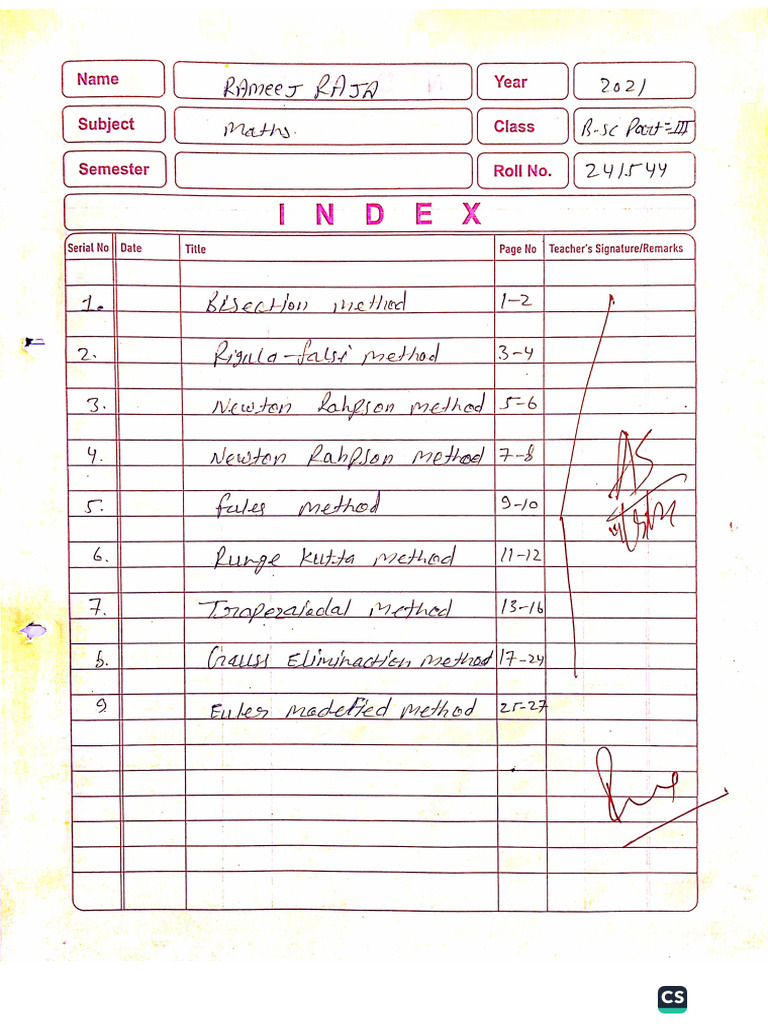 Name RAMEEJ RAJA Year 2021
Subject Maths. Class B-SC Part-III
Semester Roll No. 241544
INDEX
Serial No Date Title Page No Teacher's Signature/Remarks
1. Bisection method 1-2
2. Rigula-falsi method 3-4
3. Newton Rahpson method 5-6
4. Newton Rahpson method 7-8
5. fules method 9-10
6. Runge Kutta method 11-12
7. Method 13-16
8. Gauss Eliminaction method 17-24
9 Eules madefied method 25-27
AS
CS